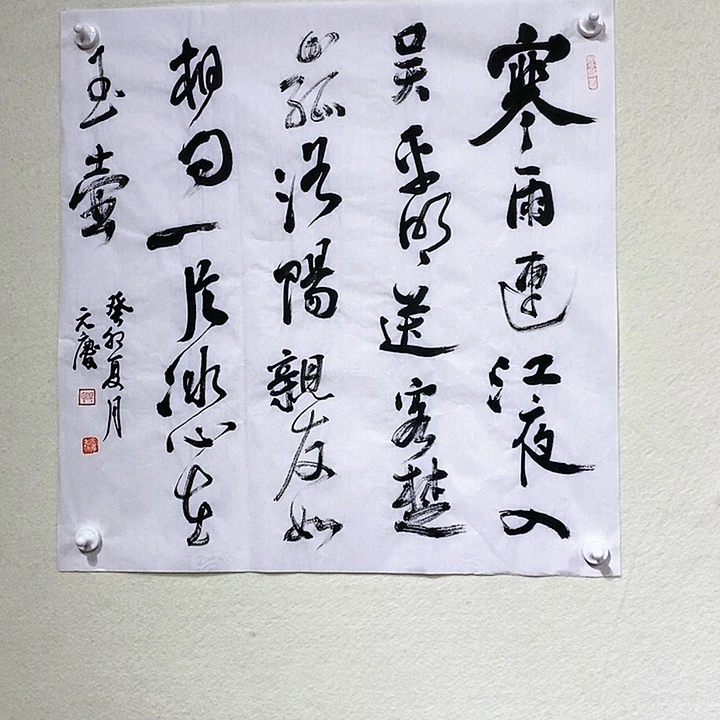 寒雨連江夜入
吳平明送客楚
山孤洛陽親友如
相問一片冰心在
玉壺
癸卯夏月
元慶